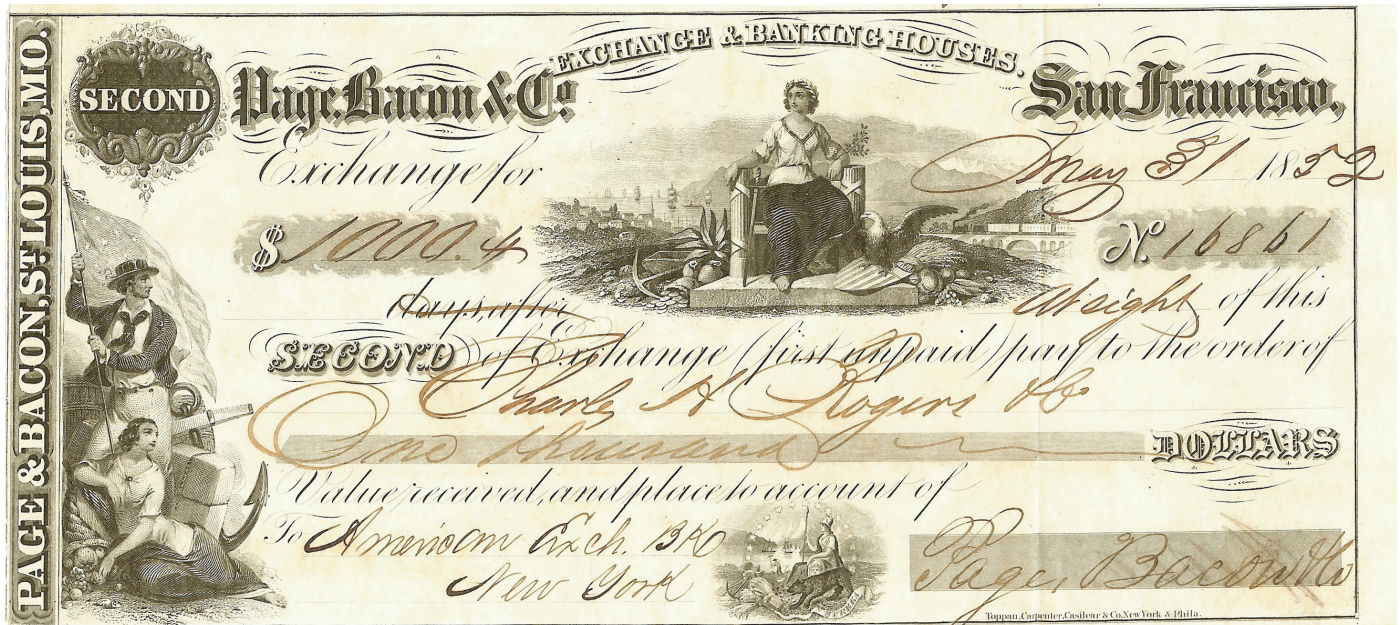 PAGE & BACON, ST. LOUIS, MO.
SECOND
EXCHANGE & BANKING HOUSES.
Page, Bacon & Co. San Francisco,
Exchange for May 31 1852
$ 1000.
N. 16861
days, after At sight of this
SECOND of Exchange (first unpaid) pay to the order of
Charles H Rogers & Co
One thousand DOLLARS
Value received, and place to account of
To American Exch. Bk
New York
Page, Bacon & Co
Toppan, Carpenter, Casilear & Co. New York & Phila.